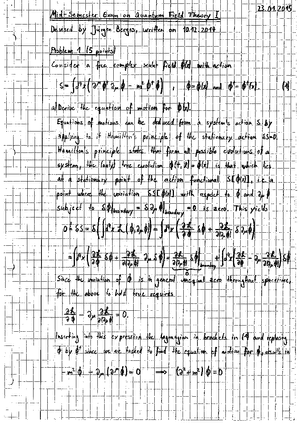 23.01.2015
Mid-Semester Exam on Quantum Field Theory I
Devised by Jürgen Berges, written on 10.12.2014
Problem 1 (5 points)
Consider a free complex scalar field ϕ(x) with action
S = ∫d⁴x (∂^μ ϕ* ∂_μ ϕ - m² ϕ* ϕ), ϕ = ϕ(x) and ϕ* = ϕ*(x). (1)
a) Derive the equation of motion for ϕ(x).
Equations of motions can be deduced from a system's action S by
applying to it Hamilton's principle of the stationary action δS=0.
Hamilton's principle states that from all possible evolutions of a
system, the (only) true evolution ϕ(t,x) = ϕ(x) is that which lies
at a stationary point of the action functional S[ϕ(x)], i.e. a
point where the variation δS[ϕ(x)] with respect to ϕ and ∂_μ ϕ
subject to δϕ|boundary = δ∂_μ ϕ|boundary = 0 is zero. This yields
0 = δS = δ∫d⁴x ℒ(ϕ, ∂_μ ϕ) = ∫d⁴x (∂ℒ/∂ϕ δϕ + ∂ℒ/∂(∂_μ ϕ) δ∂_μ ϕ)
Since the variation of ϕ is in general unequal zero throughout spacetime,
for the above to hold true requires
∂ℒ/∂ϕ - ∂_μ ∂ℒ/∂(∂_μ ϕ) = 0.
Inserting into this expression the Lagrangian in brackets in (1) and replacing
ϕ by ϕ* since we are tasked to find the equation of motion for ϕ, results in
-m² ϕ - ∂_μ (∂^μ ϕ) = 0 ⟹ (∂² + m²) ϕ = 0